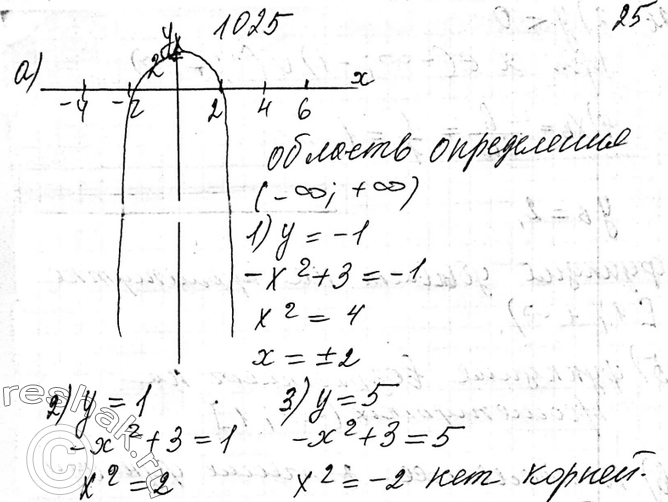 1025
25
а)
y
2
x
-4 -2 2 4 6
область определения
(-∞; +∞)
1) y = -1
-x²+3 = -1
x² = 4
x = ±2
2) y = 1
-x²+3 = 1
x² = 2
3) y = 5
-x²+3 = 5
x² = -2 нет корней.
reshak.ru